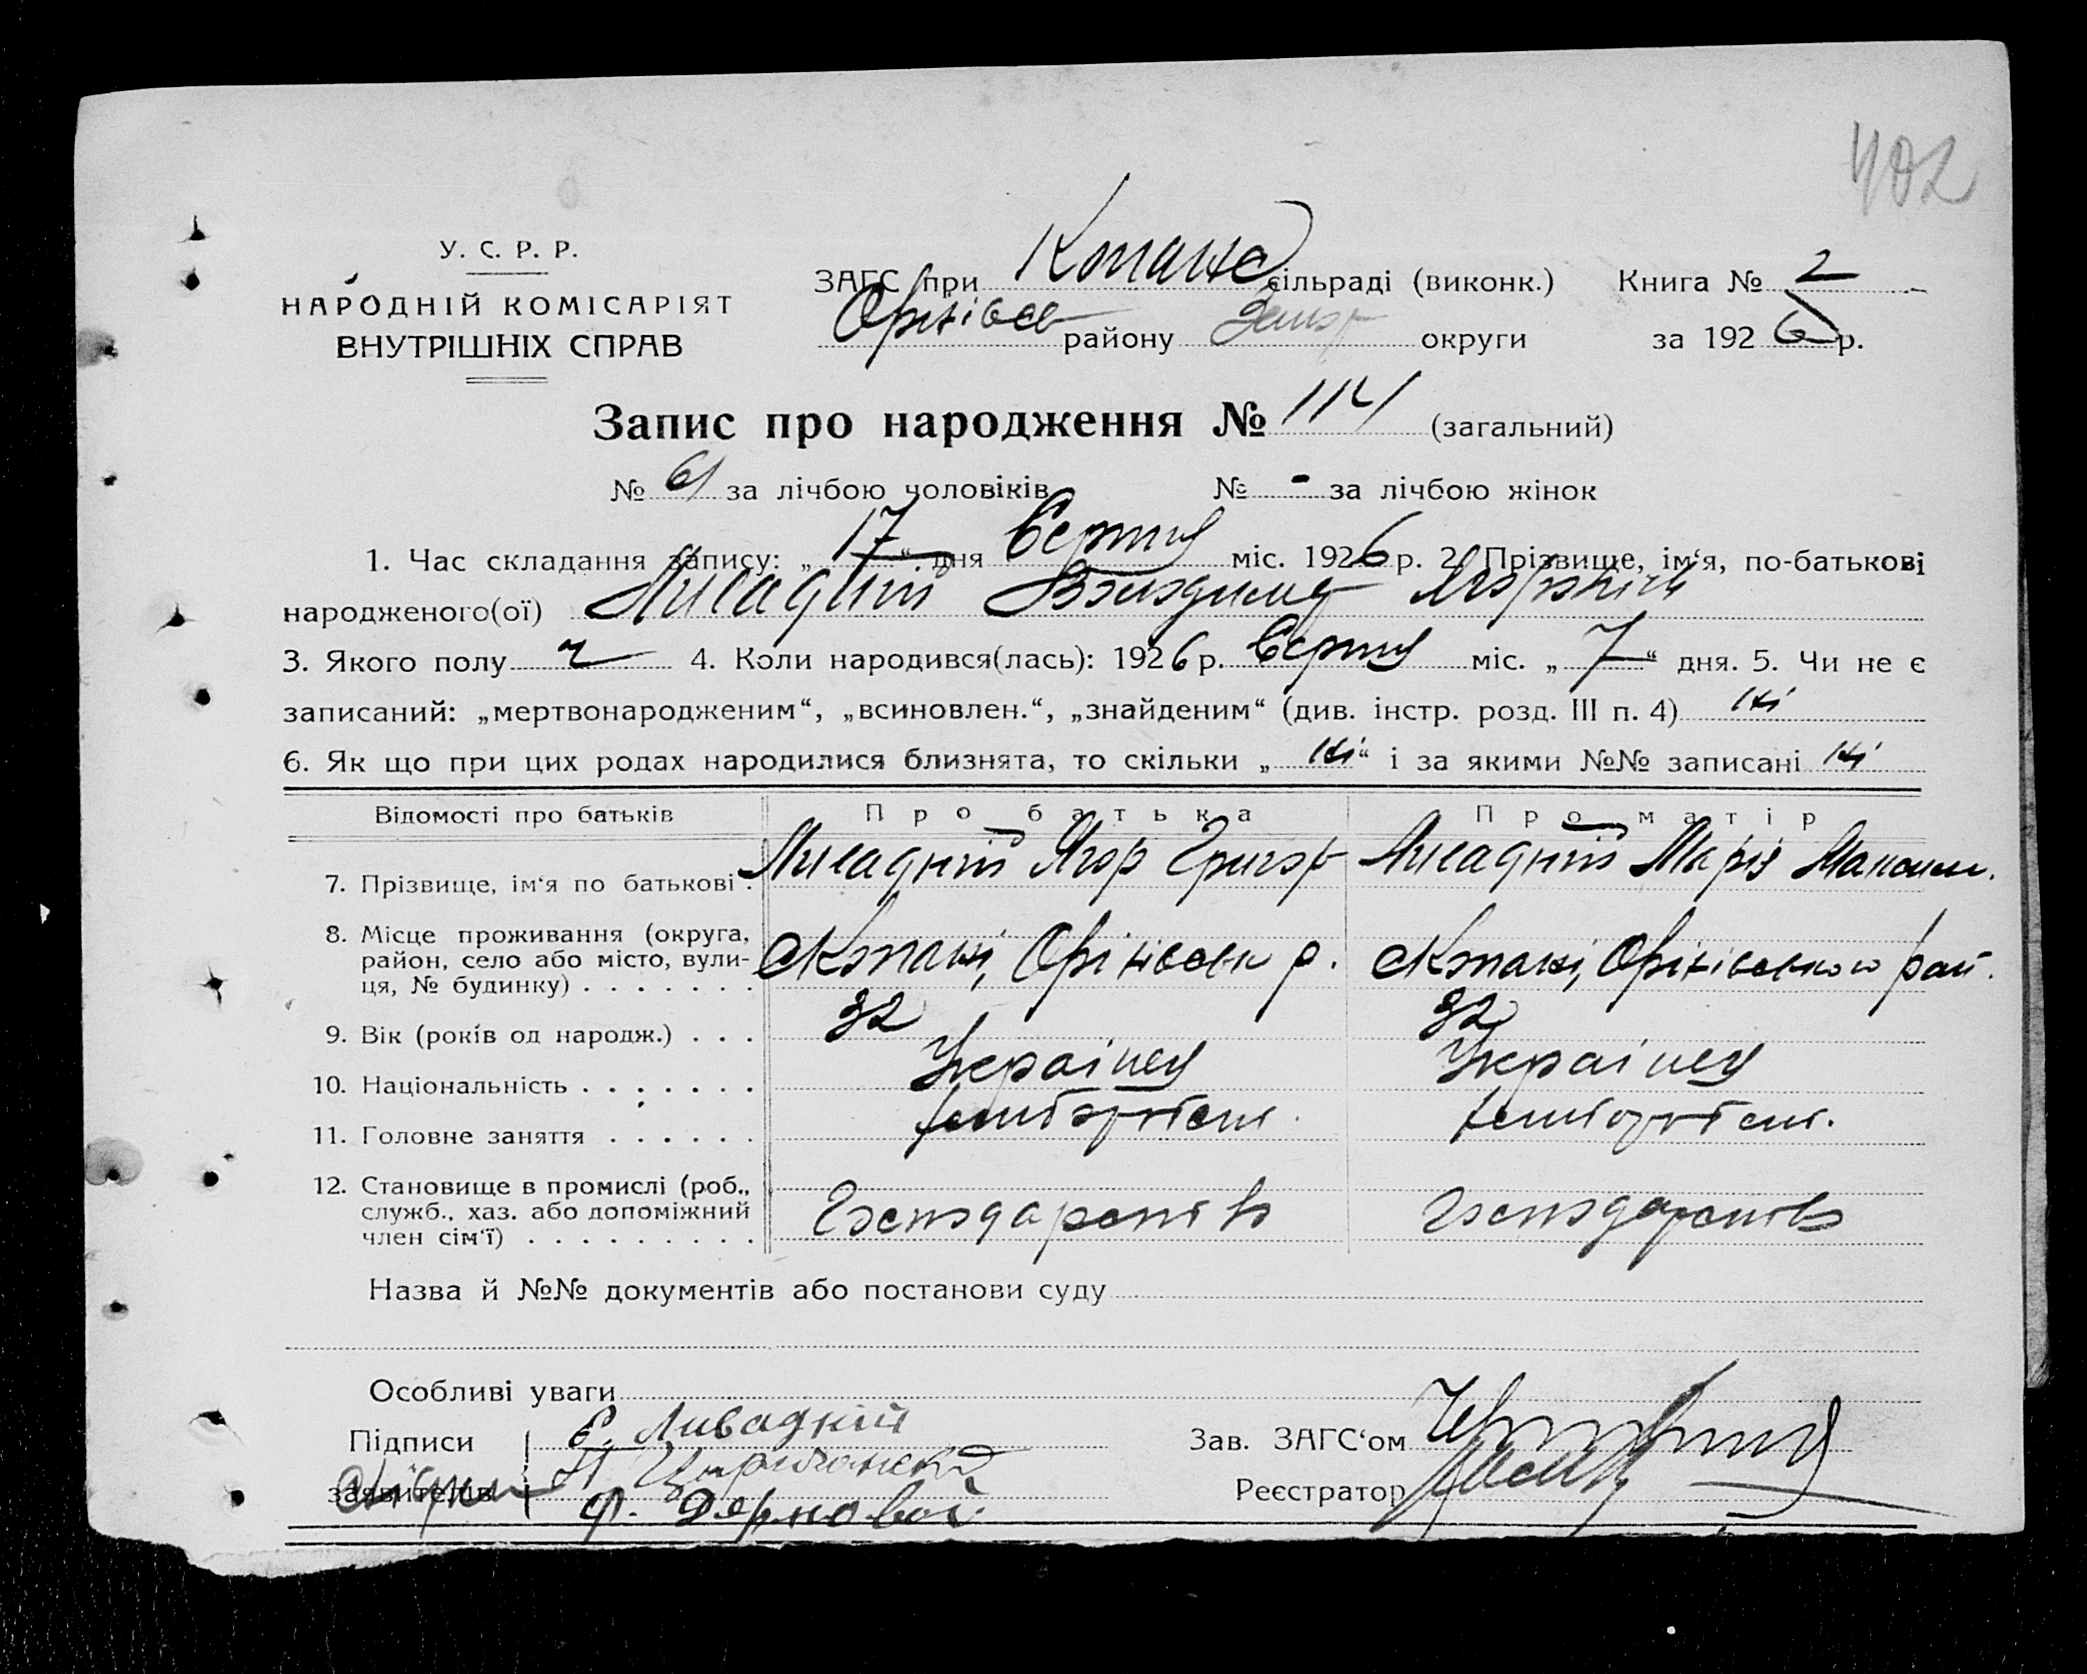 402
У. С. Р. Р.
НАРОДНІЙ КОМІСАРІЯТ
ВНУТРІШНІХ СПРАВ
ЗАГС при Копане сільраді (виконк.) Книга № 2
Оріхівсв району Запор округи за 1926 р.
Запис про народження № 114 (загальний)
№ 61 за лічбою чоловіків № - за лічбою жінок
1. Час складання запису: „17“ дня Серпня міс. 1926 р. 2. Прізвище, ім‘я, по-батькові
народженого(ої) Ливадний Володимир
3. Якого полу ч 4. Коли народився(лась): 1926 р. Серпня міс. „7“ дня. 5. Чи не є
записаний: „мертвонародженим“, „всиновлен.“, „знайденим“ (див. інстр. розд. III п. 4) ні
6. Як що при цих родах народилися близнята, то скільки „ні“ і за якими №№ записані ні
Відомості про батьків Про батька Про матір
7. Прізвище, ім‘я по батькові. Ливадний Ягор Григор Ливадній Марія
8. Місце проживання (округа, район, село або місто, вулиця, № будинку) . . . . . . . с Копані, Оріхівськ р. с Копані, Оріхівського рай.
9. Вік (років од народж.) . . . 32 32
10. Національність . . . . . . . Українец Україец
11. Головне заняття . . . . . .
12. Становище в промислі (роб., служб., хаз. або допоміжний член сім‘ї) . . . . . . . . . Господарств Господарств
Назва й №№ документів або постанови суду
Особливі уваги
Підписи Е. Ливадний Зав. ЗАГС‘ом
заявителів Реєстратор
Ф. Дерновой